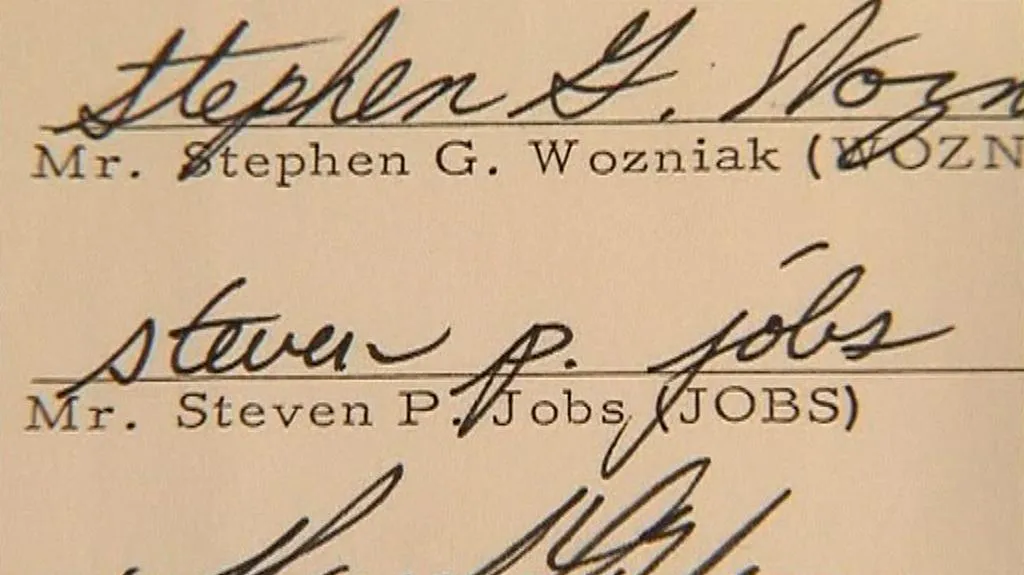 Stephen G. Wozn
Mr. Stephen G. Wozniak (WOZN
steven p. jobs
Mr. Steven P. Jobs (JOBS)